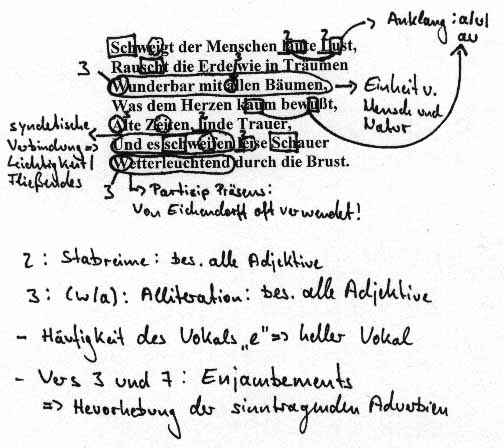 Anklang : a/u/
au
Schweigt der Menschen laute Lust,
Rauscht die Erde wie in Träumen
3
Wunderbar mit allen Bäumen,
Was dem Herzen kaum bewußt,
Alte Zeiten, linde Trauer,
Und es schweifen leise Schauer
Wetterleuchtend durch die Brust.
2
2
3
=> Einheit v.
Mensch und
Natur
syndetische
Verbindung =>
Leichtigkeit/
Fließendes
3
Partizip Präsens:
Von Eichendorff oft verwendet!
2 : Stabreime : bes. alle Adjektive
3 : (w/a) : Alliteration : bes. alle Adjektive
- Häufigkeit des Vokals „e" => heller Vokal
- Vers 3 und 7 : Enjambements
=> Hevorhebung der sinntragenden Adverbien